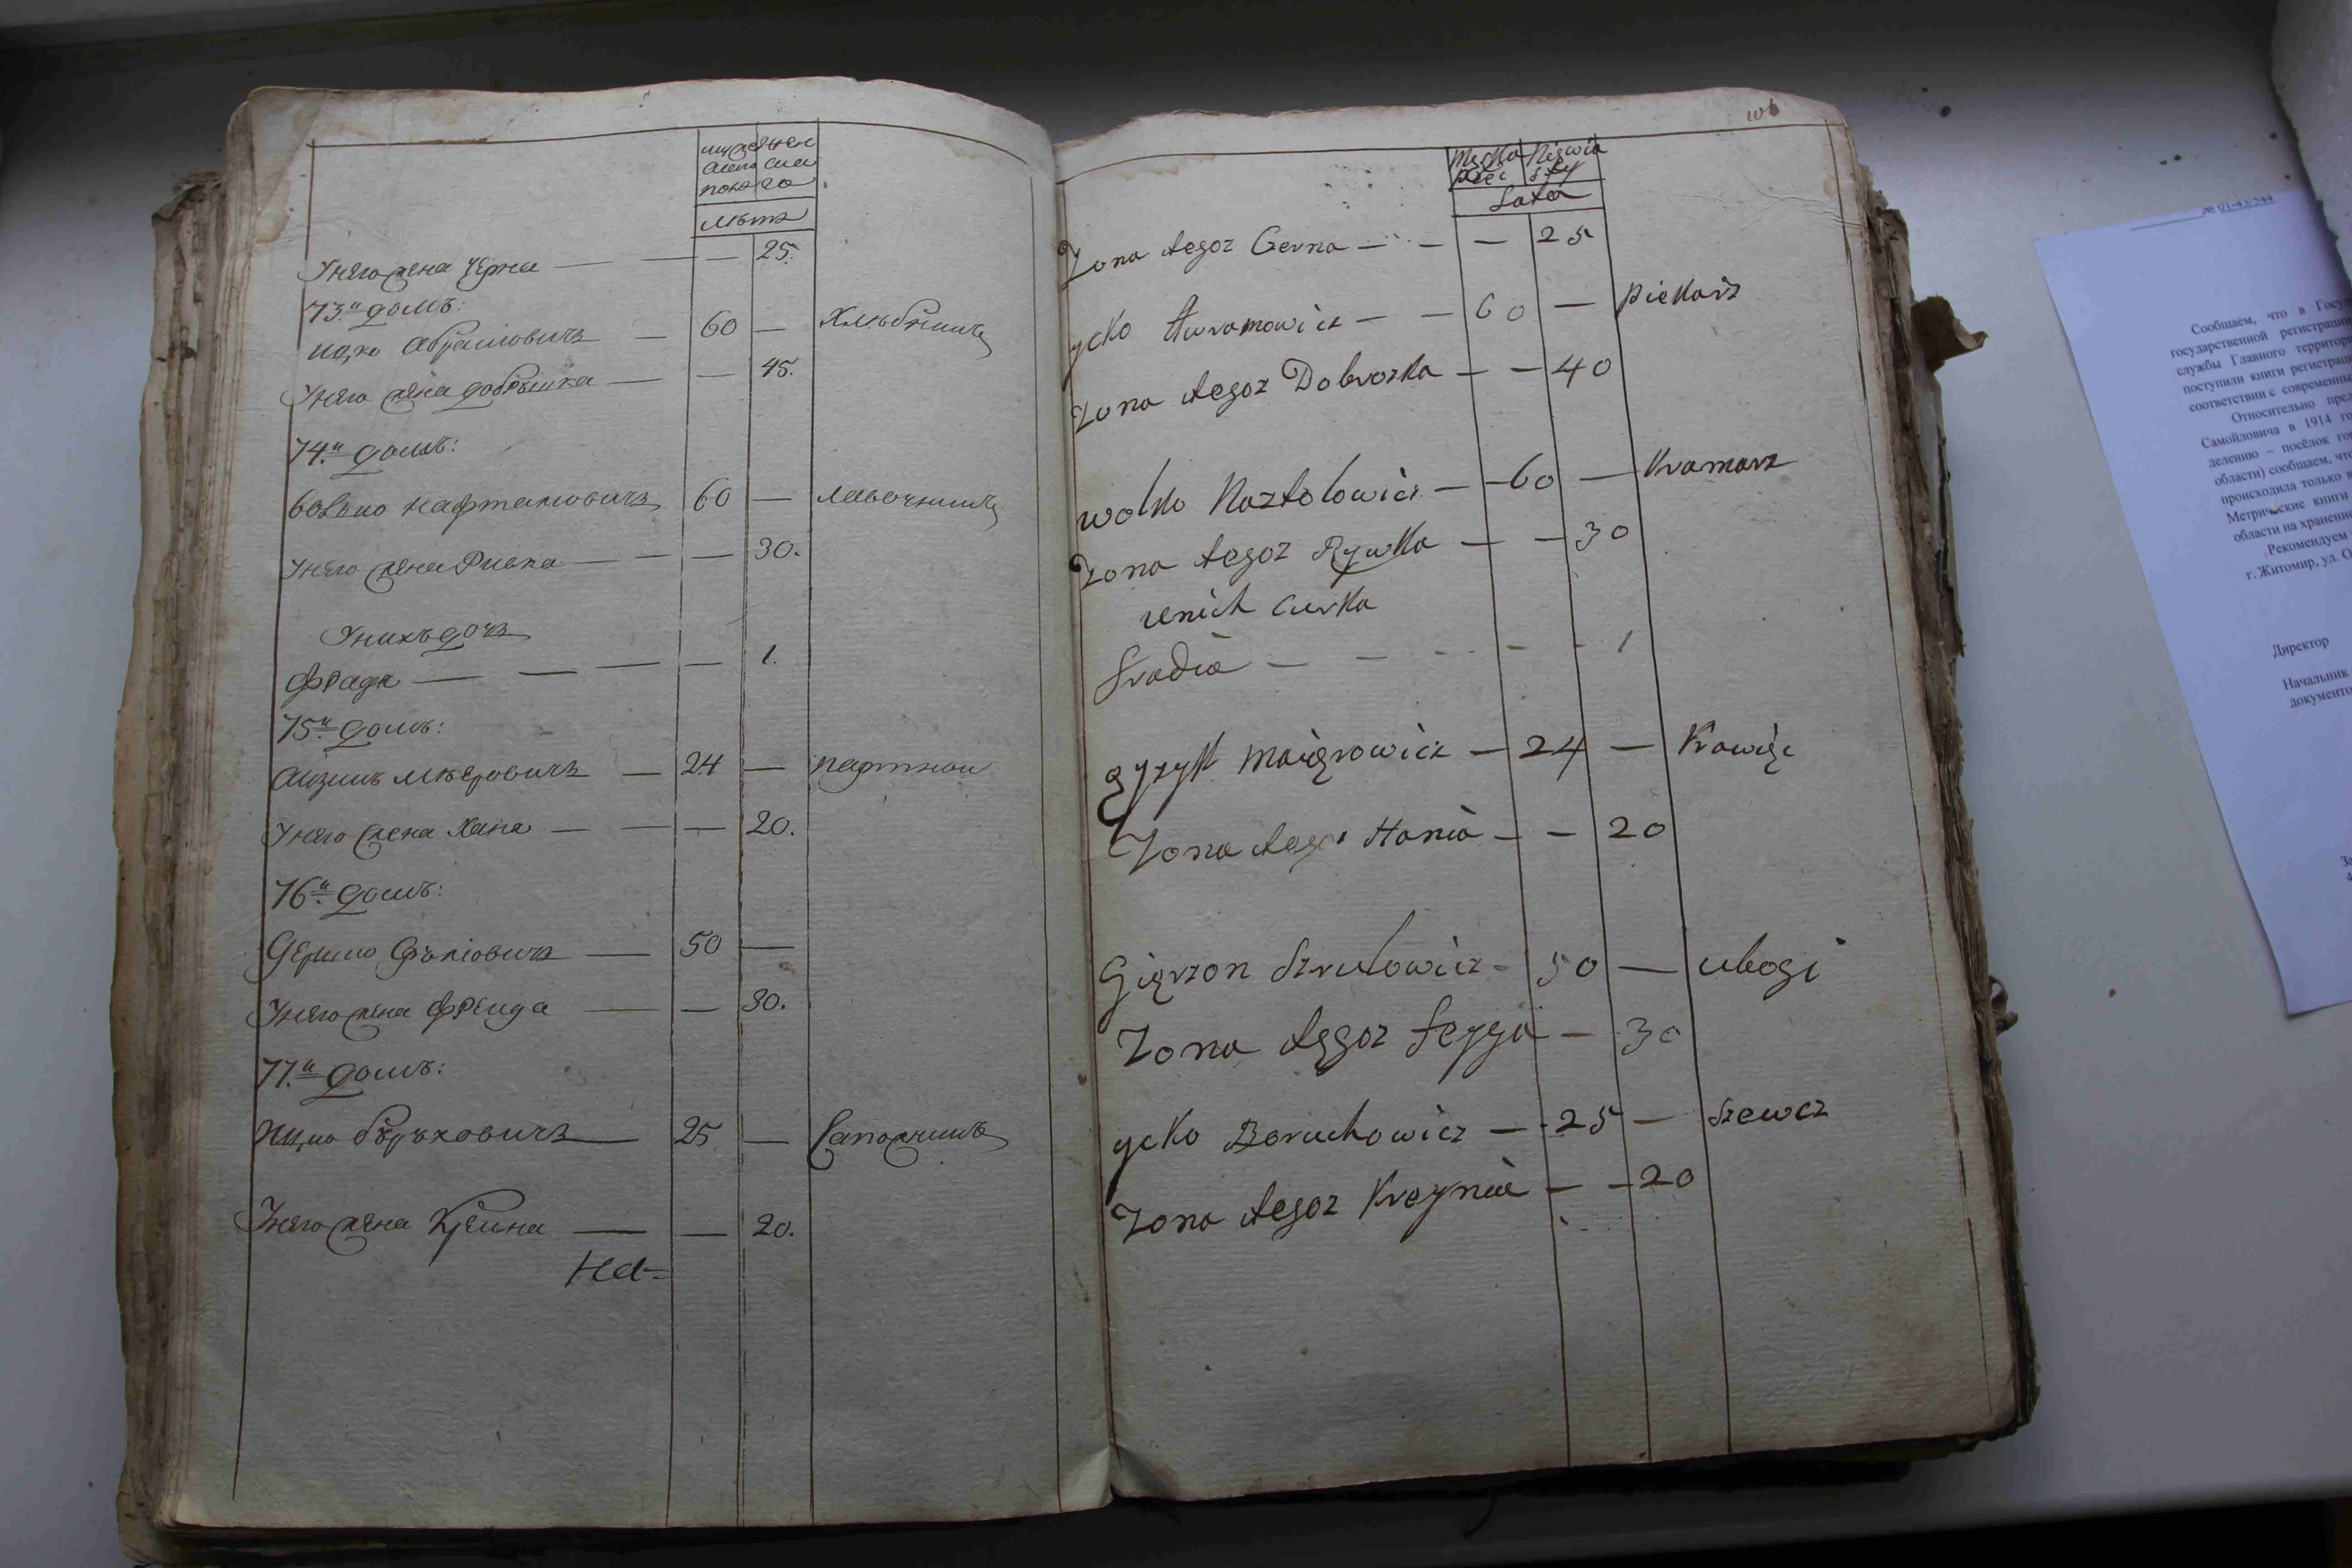 мужеска женска
пола го
лѣта
У него жена Черна — — — 25.
73.й домъ:
Ицко Абрамовичъ — 60 — Хлѣбникъ
У него жена Добрышка — — 45.
74.й домъ:
Волько Нафталовичъ 60 — лавочникъ
У него жена Ривка — — — 30.
У нихъ дочь
Фрада — — — — 1.
75.й домъ:
Айзикъ Мѣеровичъ — 24 — партной
У него жена Хана — — — 20.
76.й домъ:
Гершко Сруліовичъ — 50 —
У него жена Фейга — — 30.
77.й домъ:
Ицко Боруховичъ — 25 — Сапожникъ
У него жена Крейна — — 20.
На-
Męska Niewia
płeć sty
Lata
Zona tegoz Cerna — — — 25
ycko Awramowicz — — 60 — piekarz
Zona tegoz Dobroszka — — 40
wolko Naftolowicz — 60 — Kramarz
Zona tegoz Rywka — — 30
u nich Curka
Fradia — — — — 1
Eyzyk Maierowicz — 24 — Krawięc
Zona tegoz Hania — — 20
Gierszon Szrulowicz — 50 — ubogi
Zona tegoz feyga — 30
ycko Boruchowicz — 25 — Szewcz
Zona tegoz Kreynia — — 20
№ 01-43/544
Сообщаем, что в Госу
государственной регистрации
службы Главного территори
поступили книги регистрац
соответствии с современны
Относительно пред
Самойловича в 1914 го
делению – посёлок го
области) сообщаем, что
происходила только в
Метрические книги
области на хранение
Рекомендуем
г. Житомир, ул. О
Директор
Начальник
документо